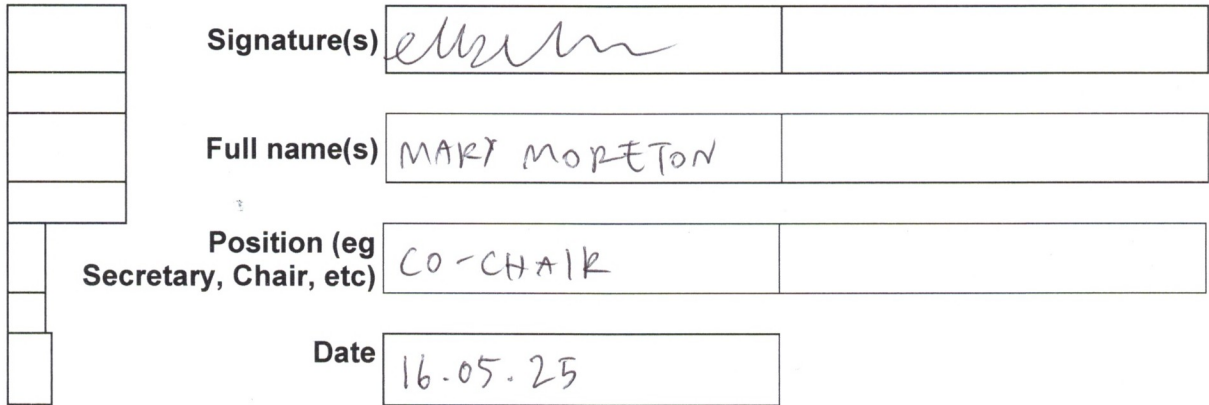 Signature(s)
Full name(s) MARY MORETON
Position (eg
Secretary, Chair, etc) CO-CHAIR
Date 16.05.25